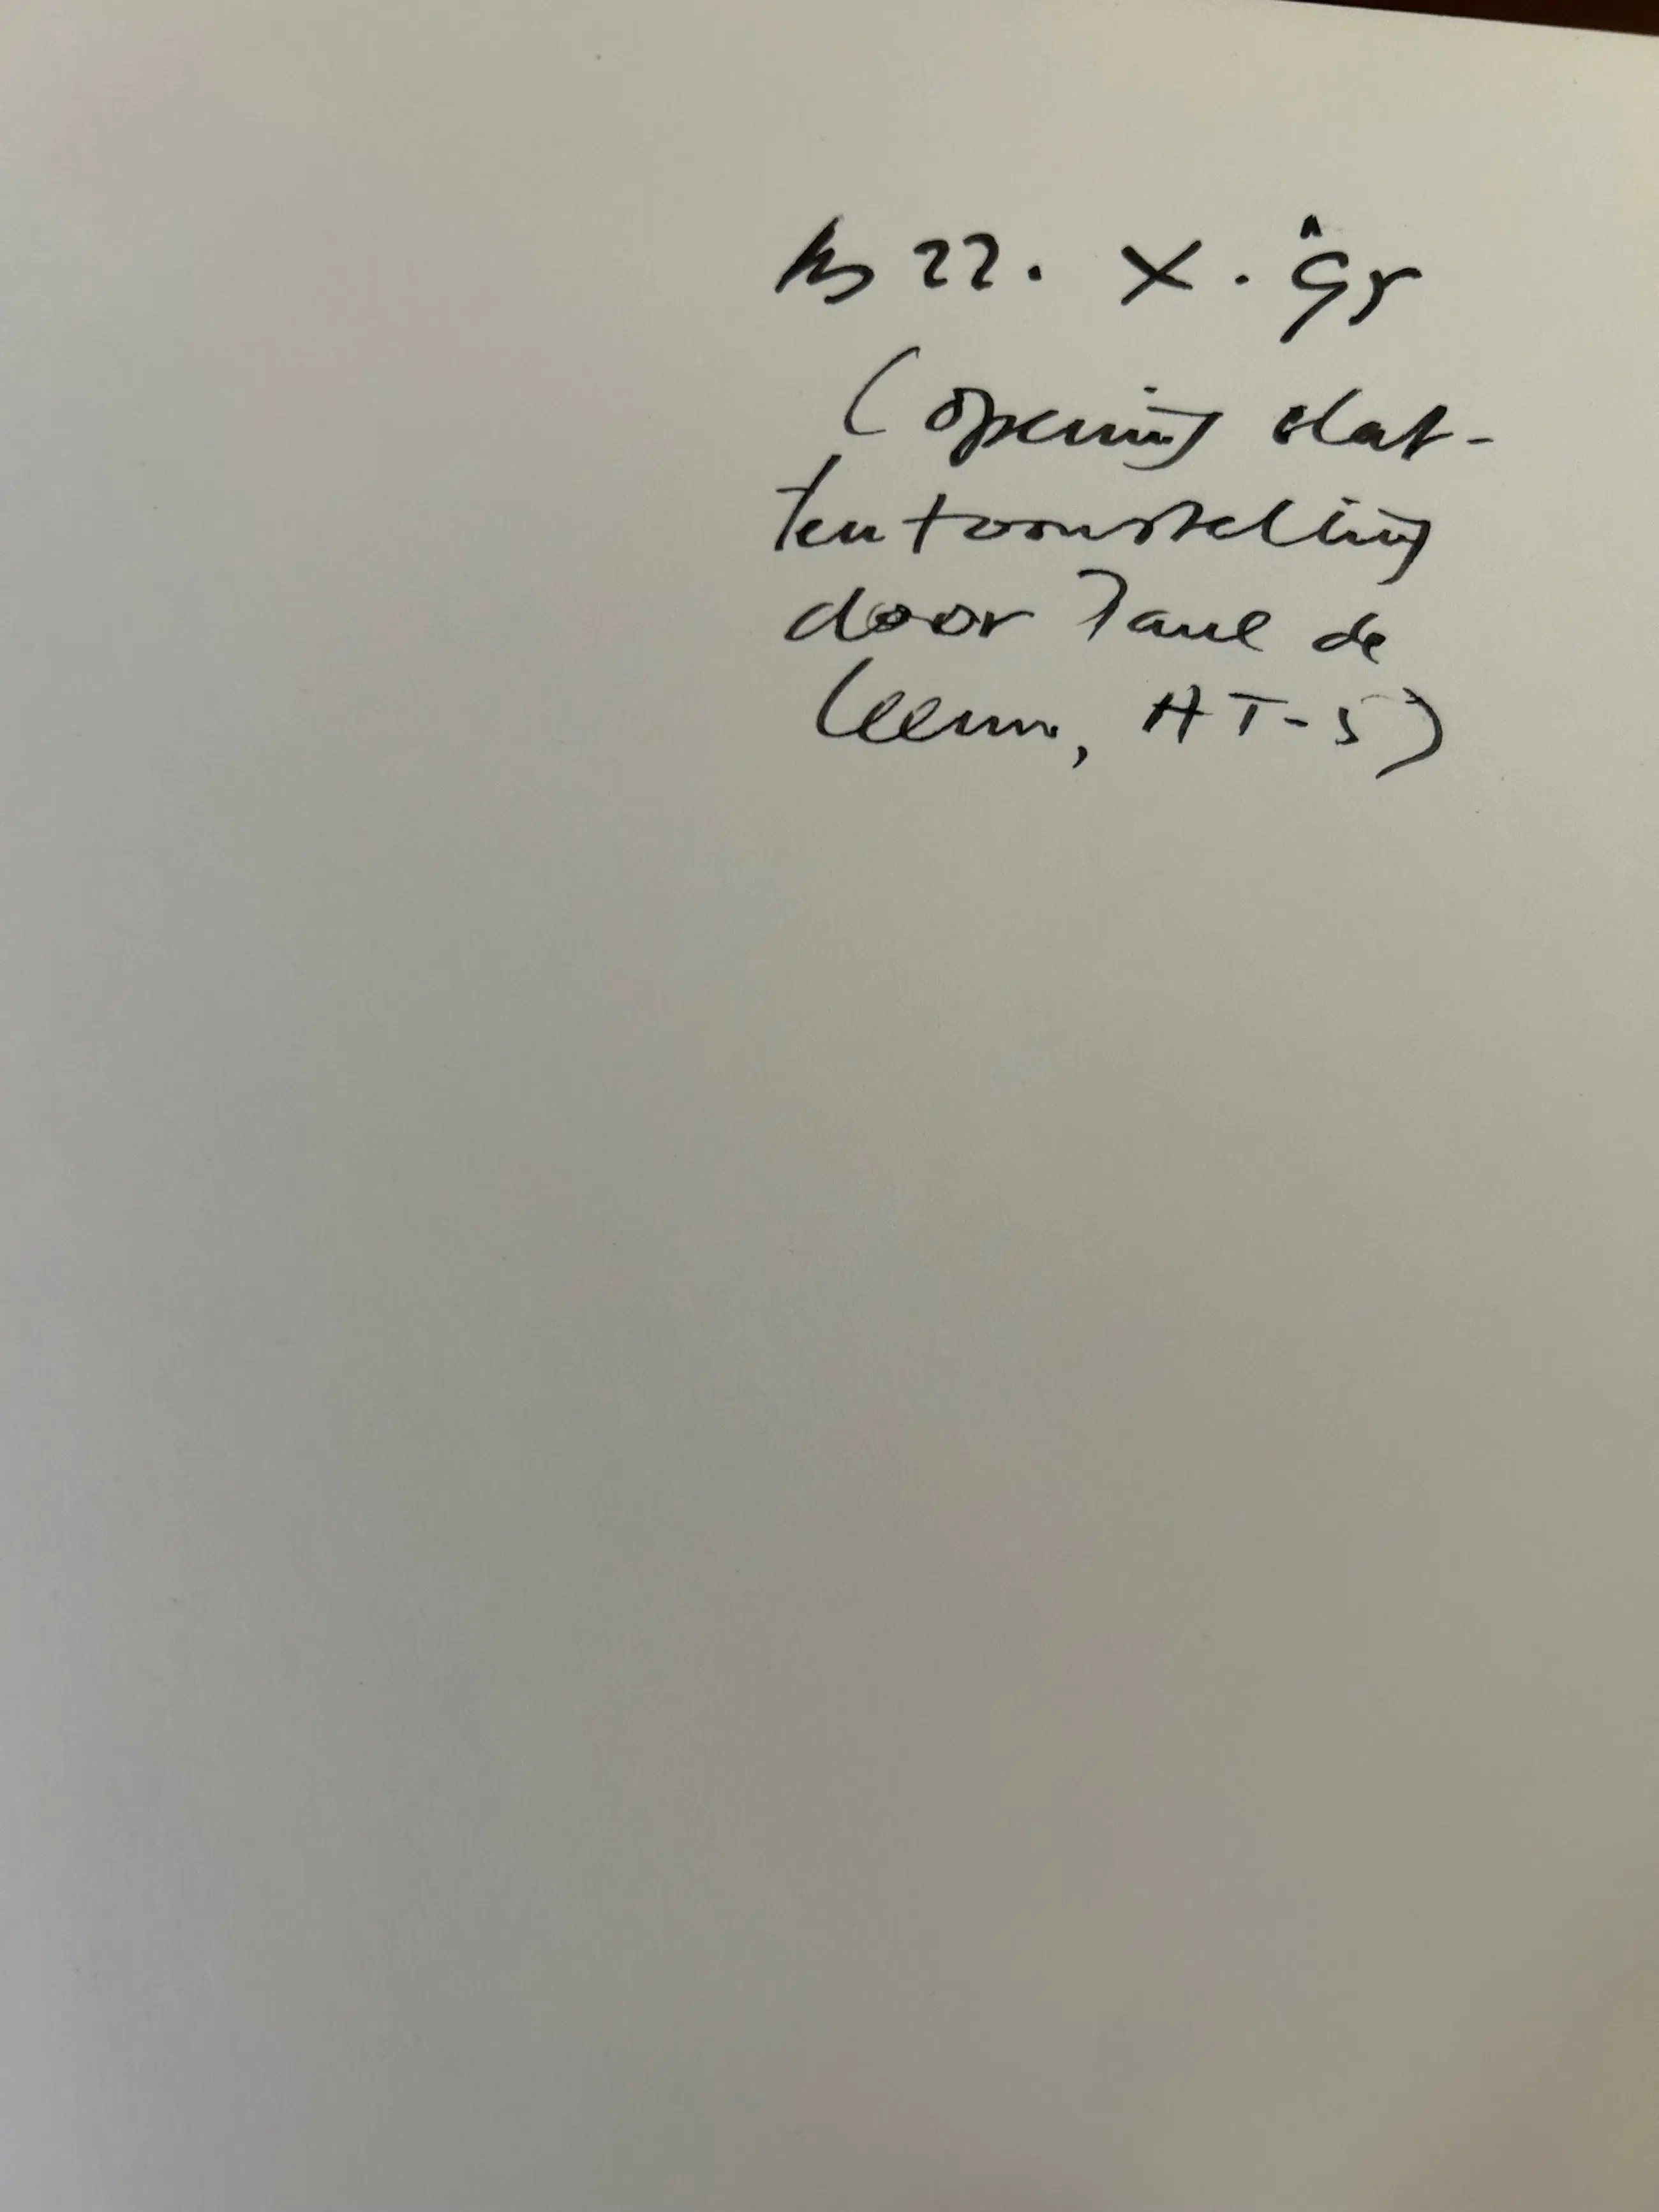 22. X. 95
(opening slat-
tentoonstelling
door Paul de
Leeuw, AT-5)